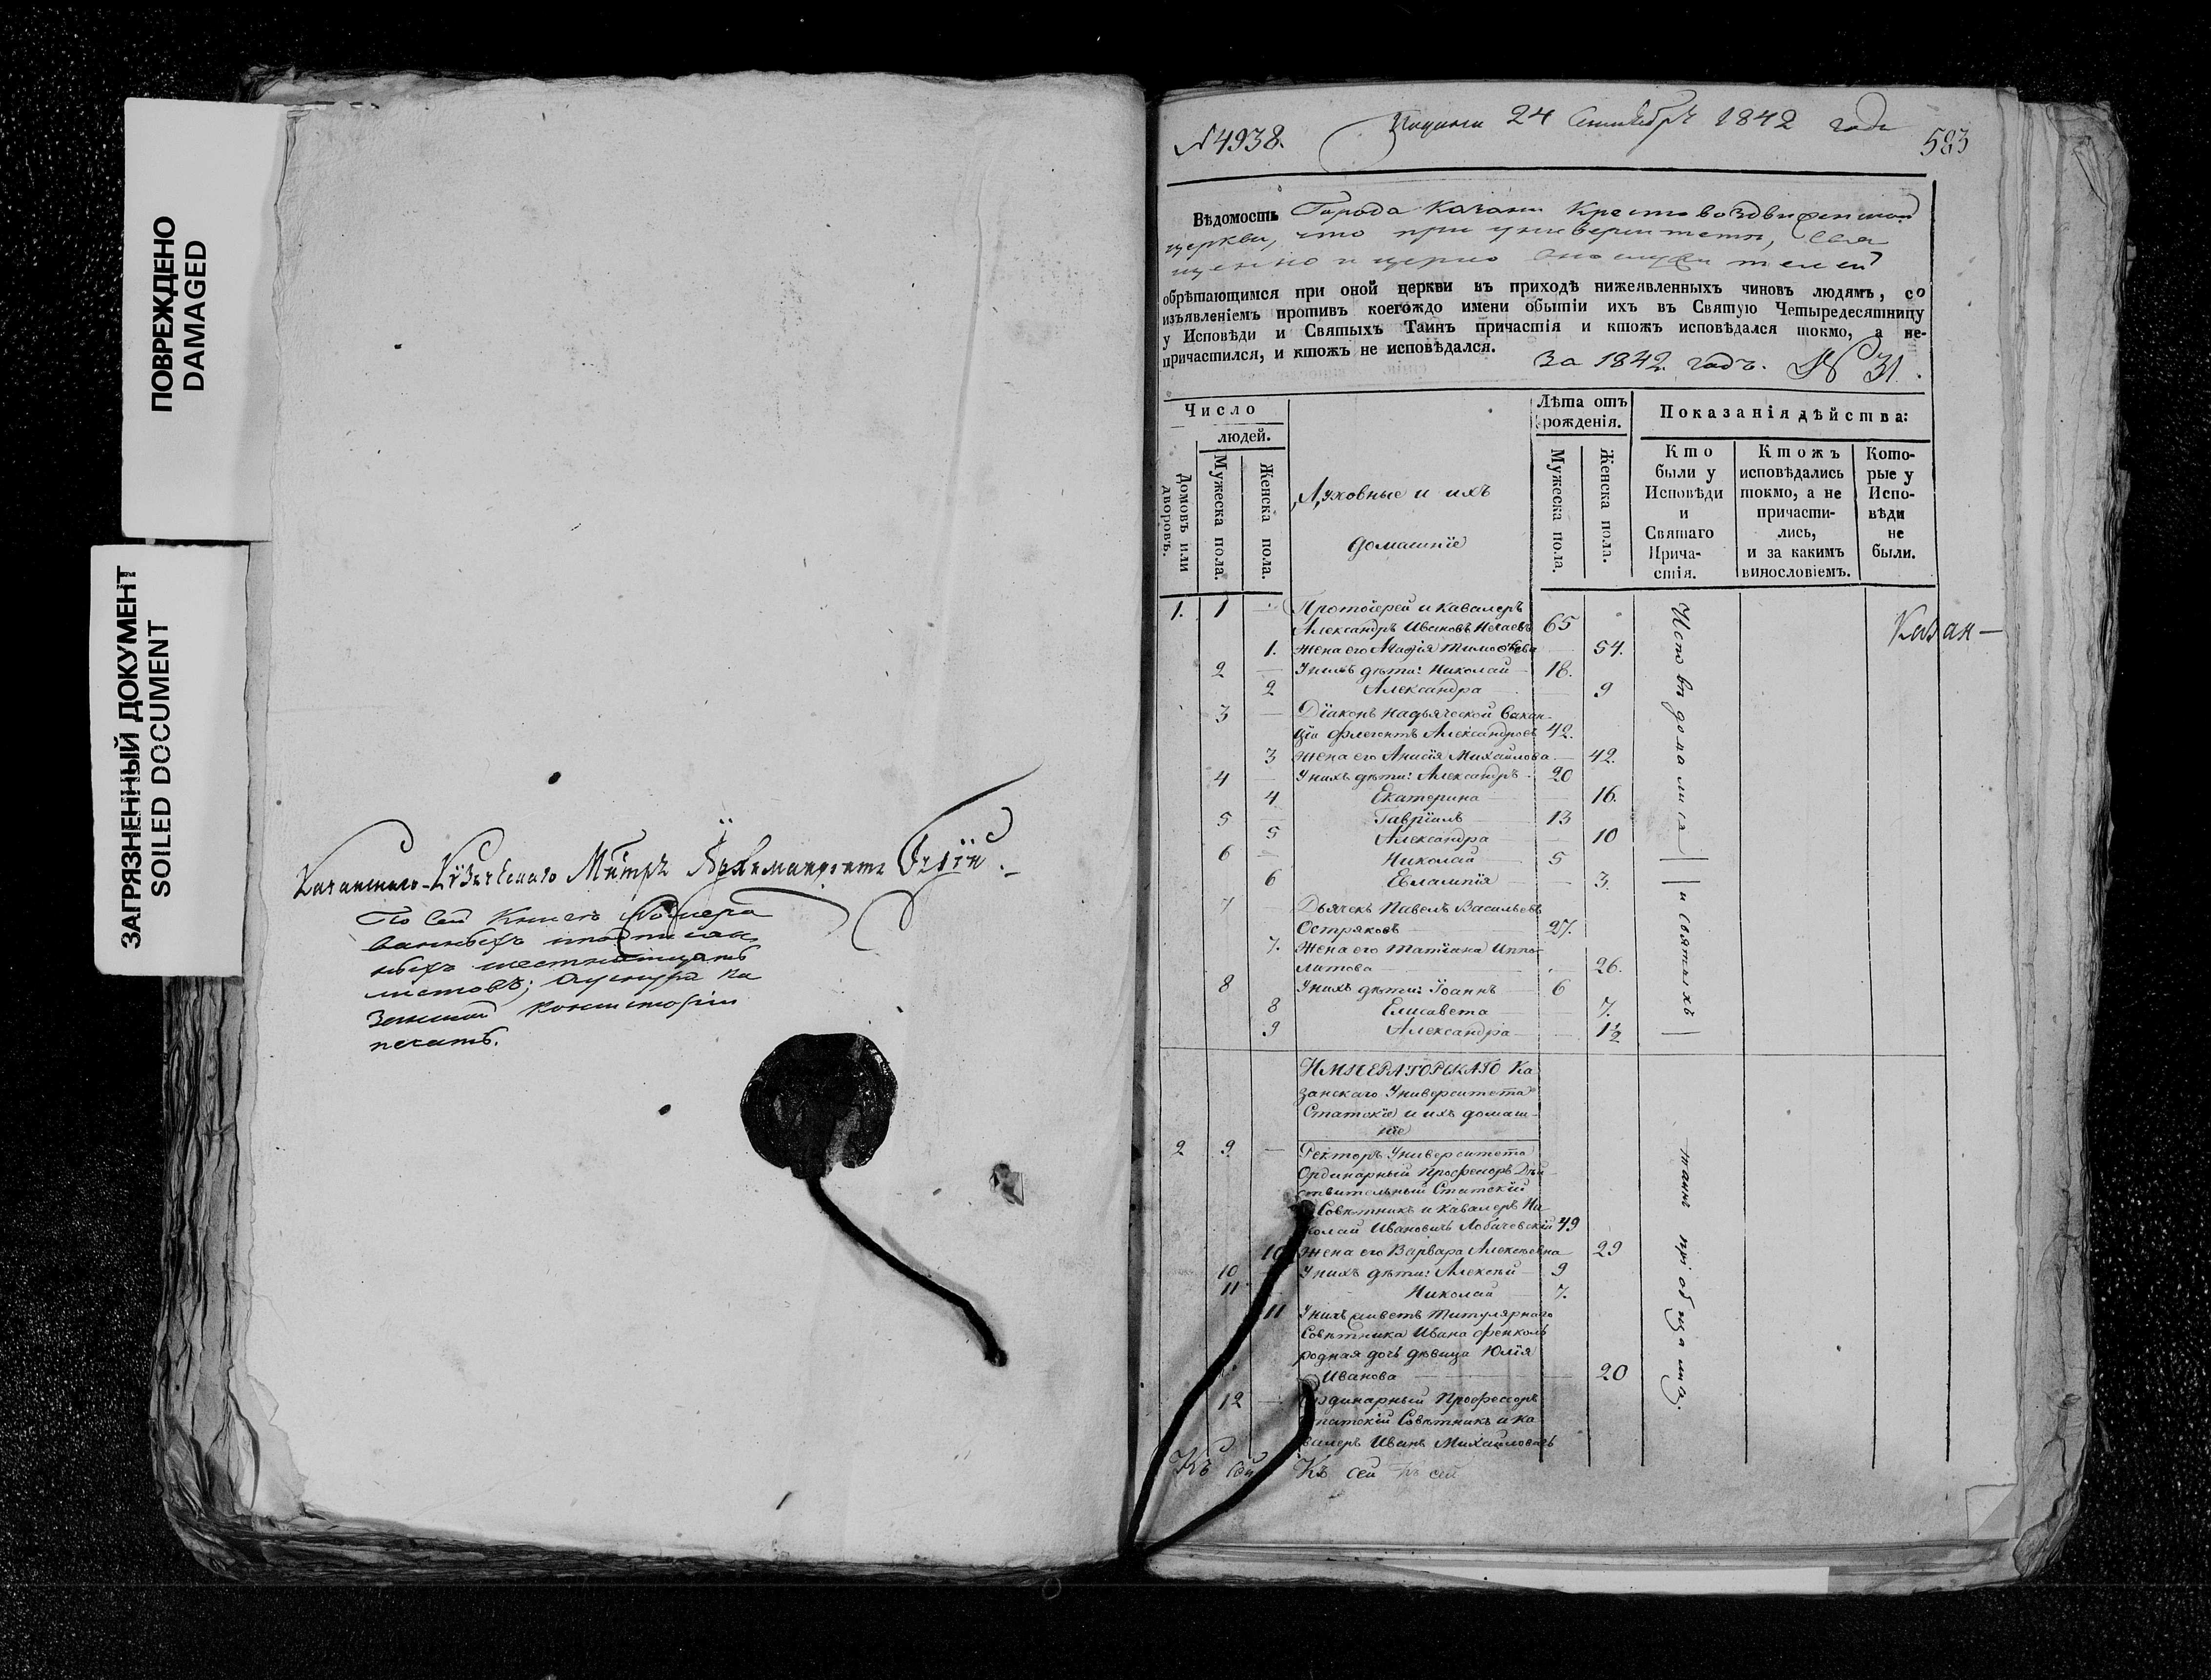 ПОВРЕЖДЕНО
DAMAGED
ЗАГРЯЗНЕННЫЙ ДОКУМЕНТ
SOILED DOCUMENT
По сей книге Номеро
ванныхъ
листовъ; Ка
занской Консисторіи
печать.
№ 4938.
Подана 24 Сентября 1842 года
583
Вѣдомость Города Казани Крестовоздвиженской
церкви, что при университетѣ, Свя
щенно и церко служителей
обрѣтающимся при оной церкви въ приходѣ нижеявленныхъ чиновъ людямъ, со
изъявленіемъ противъ коегождо имени обытіи ихъ въ Святую Четыредесятницу
у Исповѣди и Святыхъ Таинъ причастія и ктожъ исповѣдался токмо, а не-
причастился, и ктожъ не исповѣдался.
За 1842 годъ. № 31.
Число
людей.
Домовъ или дворовъ.
Мужеска пола.
Женска пола.
Духовные и ихъ
домашніе
Лѣта отъ
рожденія.
Мужеска пола.
Женска пола.
Показанія дѣйства:
Кто
были у
Исповѣди
и
Святаго
Прича-
стія.
Ктожъ
исповѣдались
токмо, а не
причасти-
лись,
и за какимъ
винословіемъ.
Кото-
рые у
Испо-
вѣди
не
были.
1. 1 — Протоіерей и Кавалеръ
Александръ Ивановъ Нечаевъ 65
1. Жена его Агафія Тимофѣева — 54.
2 — У нихъ дѣти: Николай — 18.
2 Александра — 9
3 — Діаконъ на дьяческой вакан-
ціи Флегонтъ Александровъ 42.
3 Жена его Анисія Михайлова — 42.
4 — У нихъ дѣти: Александръ — 20
4 Екатерина — 16.
5 — Гавріилъ — 13
5 Александра — 10
6 — Николай — 5
6 Евлампія — 3.
7 — Дьячекъ Павелъ Васильевъ
Остряковъ — 27.
7. Жена его Татіана Иппо-
литова — 26.
8 У нихъ дѣти: Іоаннъ — 6
8 Елисавета — 7.
9 Александра — 1½
Исповѣдались и Святыхъ
Казан—
ИМПЕРАТОРСКАГО Ка
занскаго Университета
Статскіе и ихъ домаш-
ніе
2 9. — Ректоръ Университета
Ординарный Профессоръ Дѣй-
ствительный Статскій
Совѣтникъ и Кавалеръ Ни-
колай Ивановичъ Лобачевскій 49
10 Жена его Варвара Алексѣевна — 29
10 У нихъ дѣти: Алексѣй — 9
11 Николай — 7.
11 У нихъ живетъ Титулярнаго
Совѣтника Ивана
родная дочь дѣвица Юлія
Иванова — 20
12 — Ординарный Профессоръ
Статскій Совѣтникъ и ка
валеръ Иванъ Михайловичъ
таинъ пріобщались.
Къ сей Къ сей Къ сей